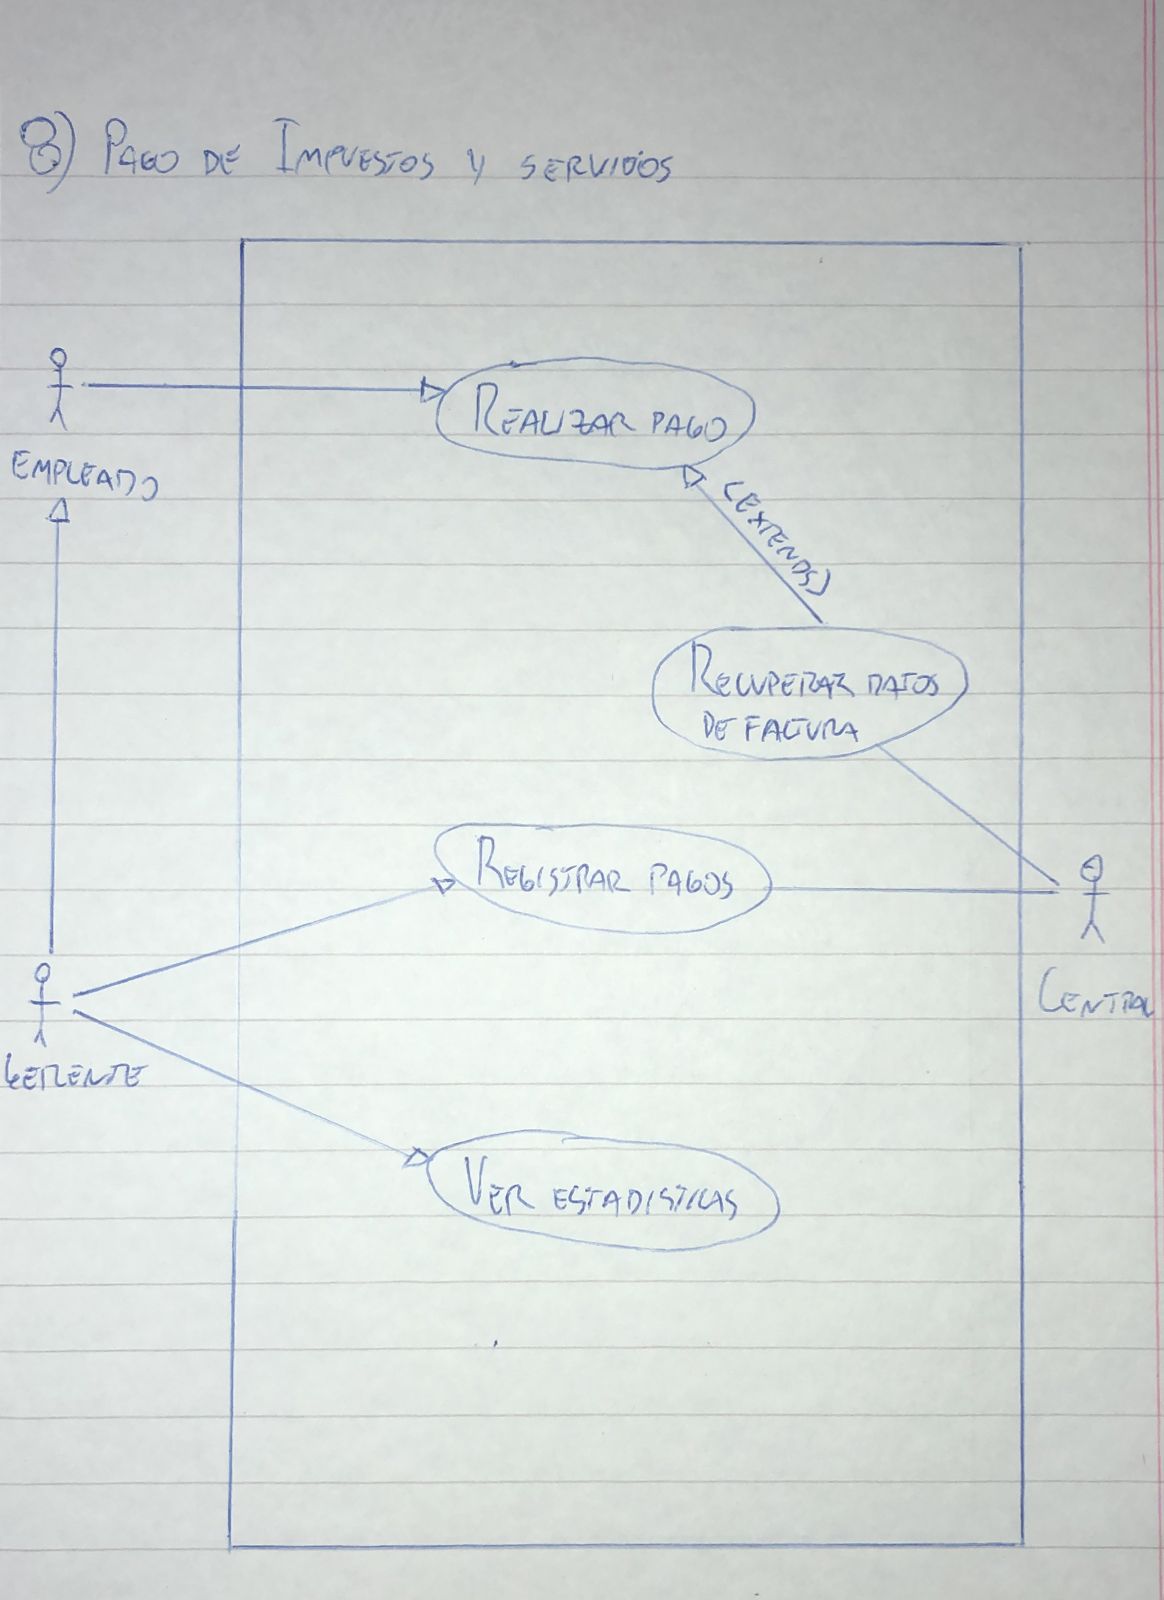 8) PAGO DE IMPUESTOS Y SERVICIOS
REALIZAR PAGO
EMPLEADO
<EXTENDS>
RECUPERAR DATOS
DE FACTURA
REGISTRAR PAGOS
CENTRAL
GERENTE
VER ESTADISTICAS